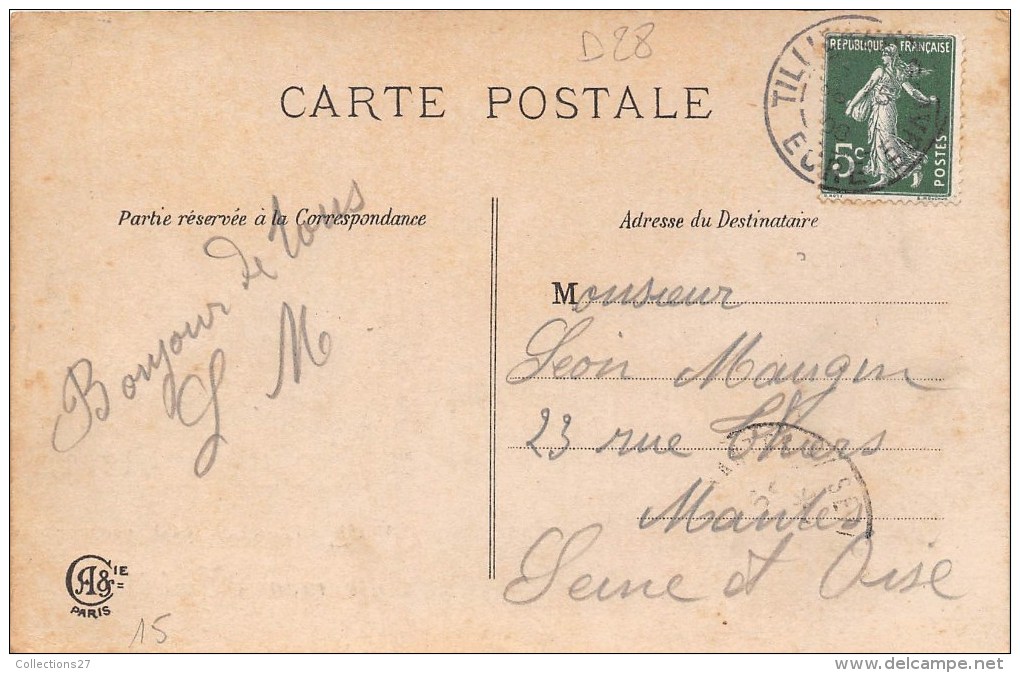 D28
CARTE POSTALE
REPUBLIQUE FRANÇAISE
5c
POSTES
TILLI
EURE
Partie réservée à la Correspondance
Bonjour de tous
G M
Adresse du Destinataire
Monsieur
Léon Maugin
23 rue Thiers
Mantes
Seine et Oise
CA&Cie
PARIS
15
Collections27
www.delcampe.net